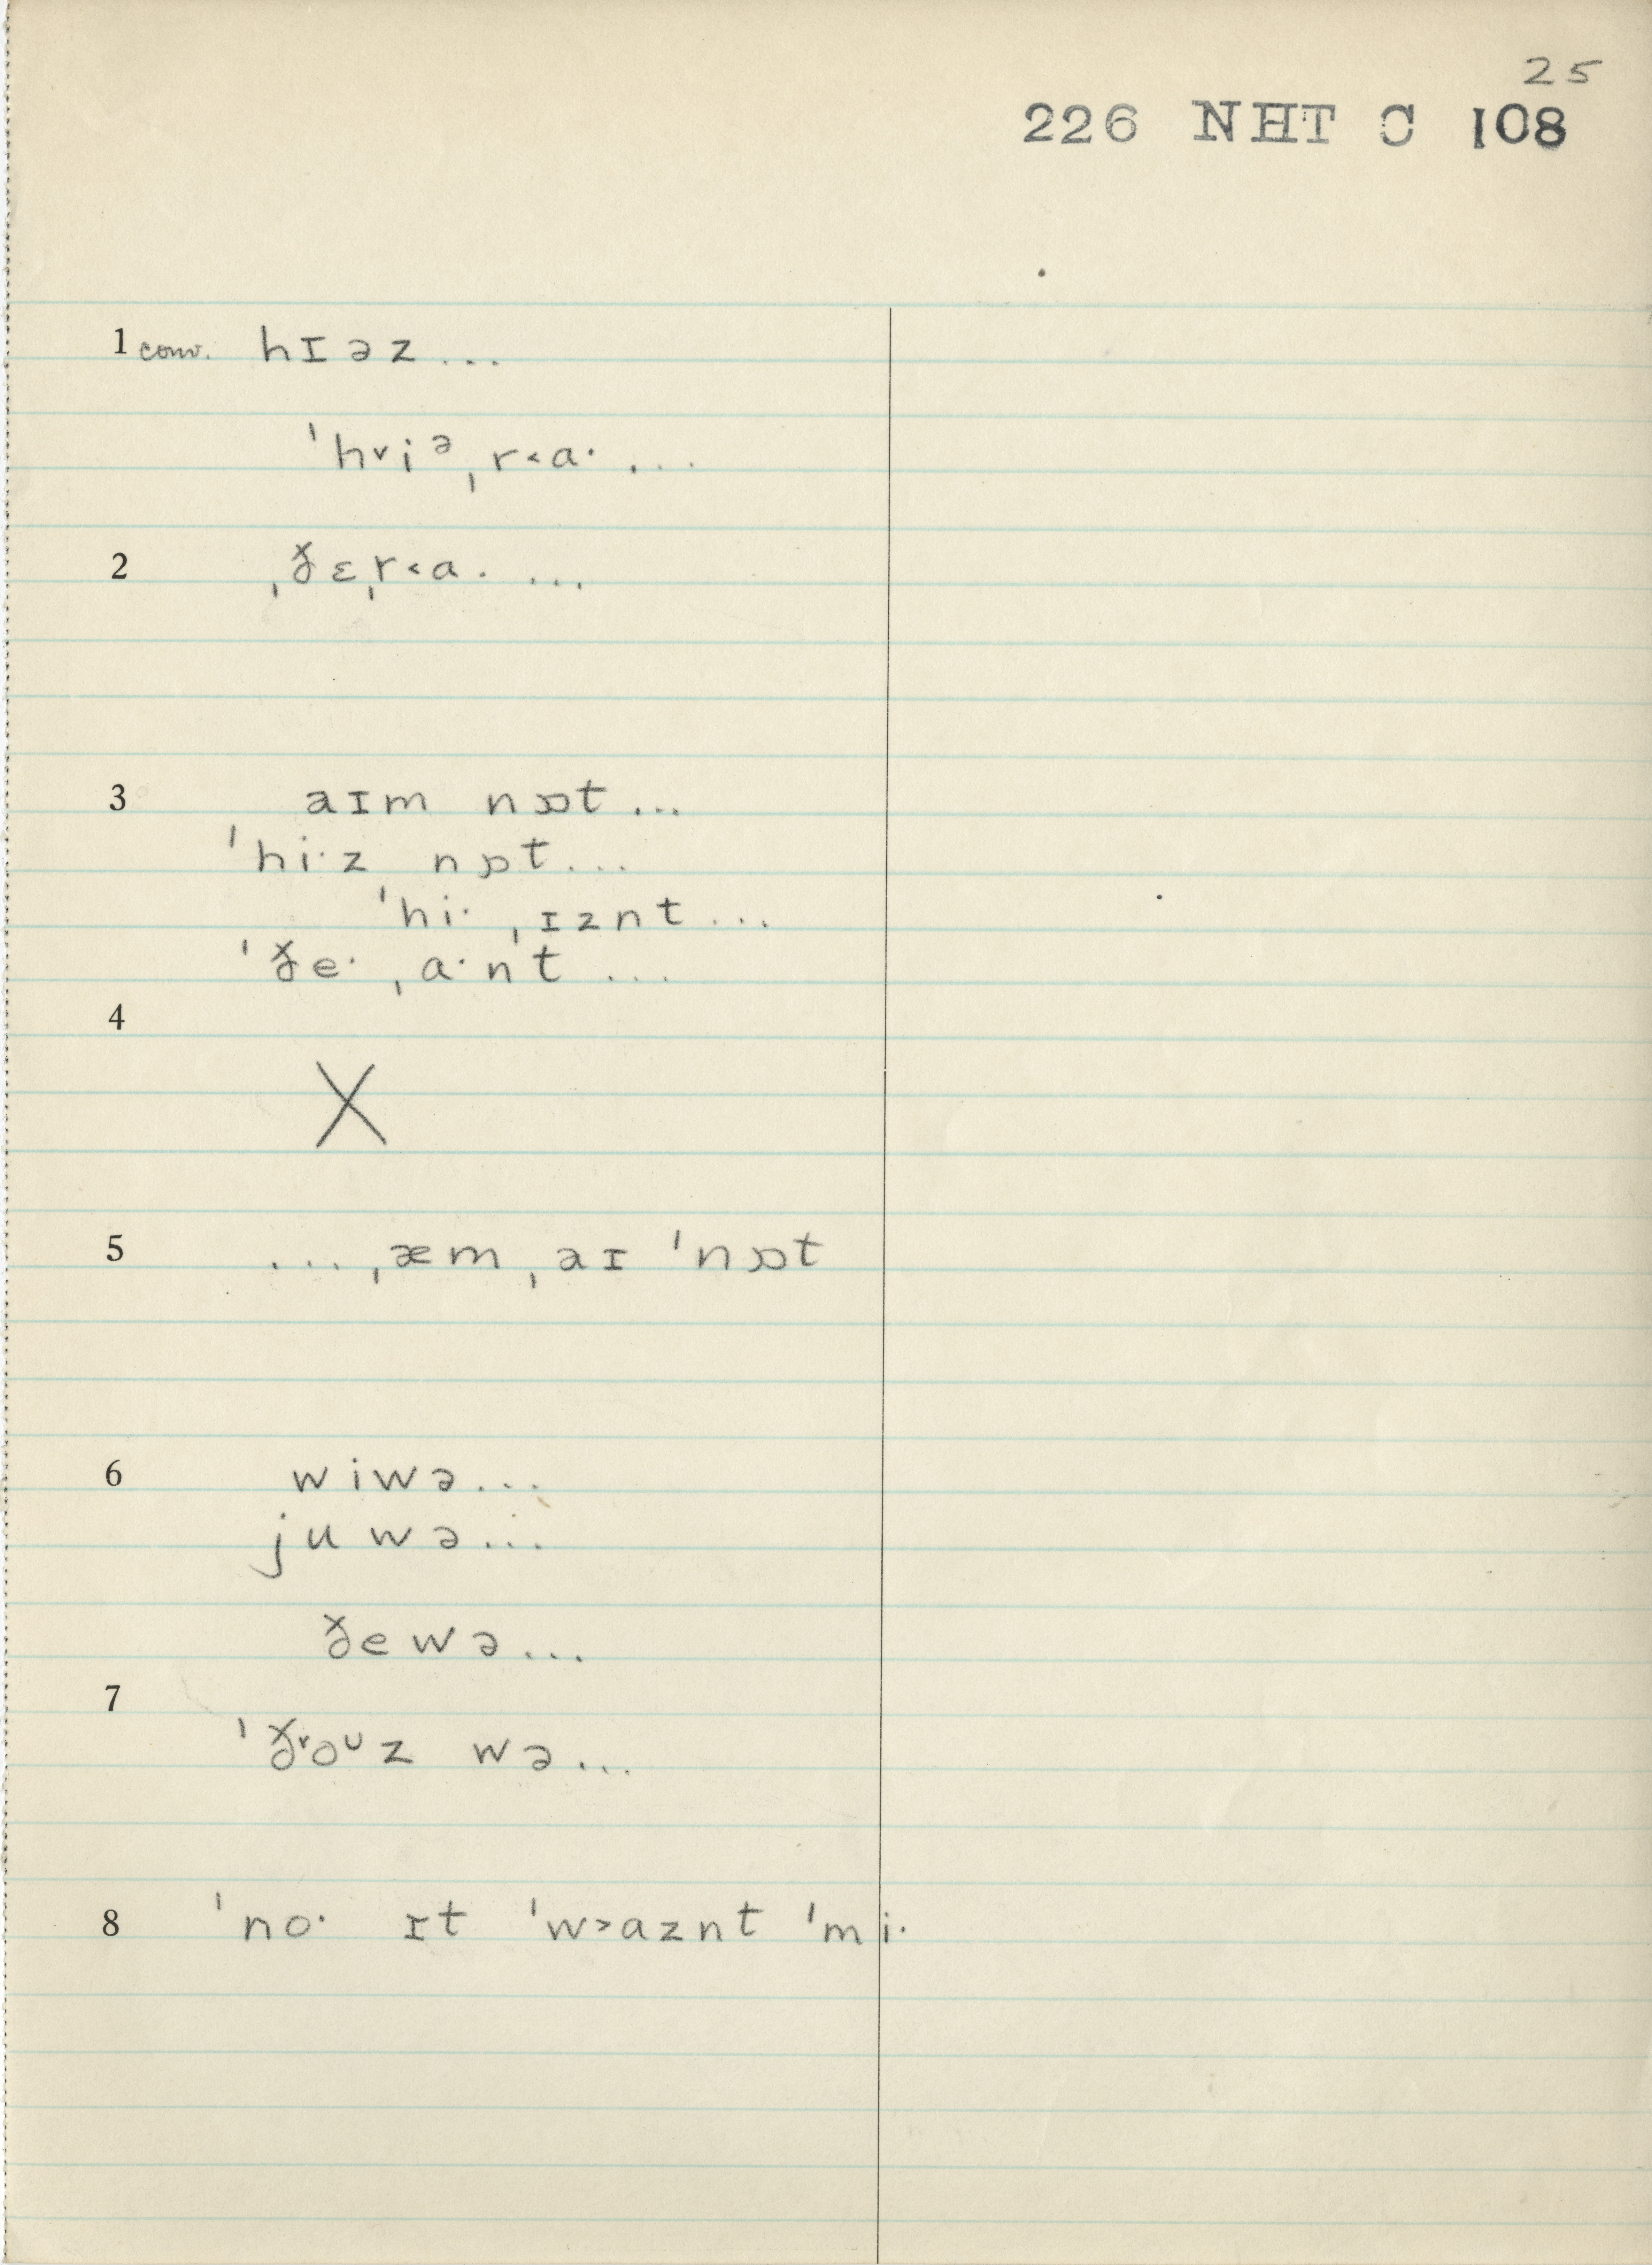 25
226 NHT C 108
1 conv. hɪəz...
ˈh˅iᵊˌr˂aˑ...
2 ˌðɛˌr˂aˑ...
3 aɪm nɒt...
ˈhiˑz nɒt...
ˈhiˑ ˌɪznt...
ˈðeˑ ˌaˑnt...
4
X
5 ...ˌæm ˌaɪ ˈnɒt
6 wiwə...
juwə...
ðewə...
7
ˈð˅oᶸz wə...
8 ˈnoˑ ɪt ˈw˃aznt ˈmiˑ